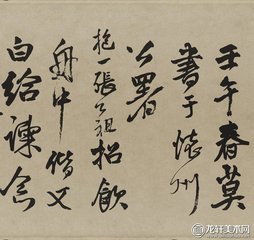 壬午春莫
書于懷州
公署
抱一張公祖招飲
舟中偕文
白給諫念
龙轩美术网